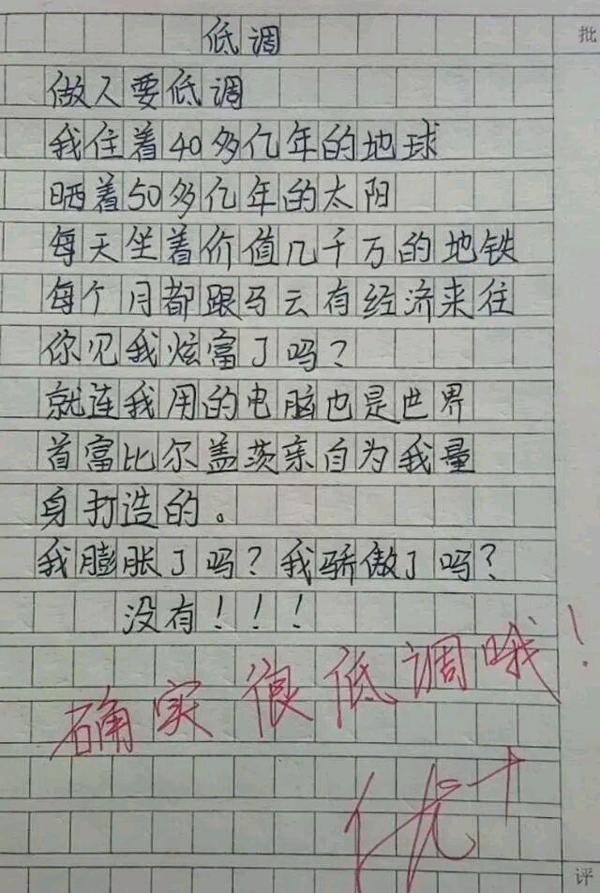 批
低调
做人要低调
我住着40多亿年的地球
晒着50多亿年的太阳
每天坐着价值几千万的地铁
每个月都跟马云有经济来往
你见我炫富了吗?
就连我用的电脑也是世界
首富比尔盖茨亲自为我量
身打造的。
我膨胀了吗?我骄傲了吗?
没有!!!
确实很低调哦!
优+
评